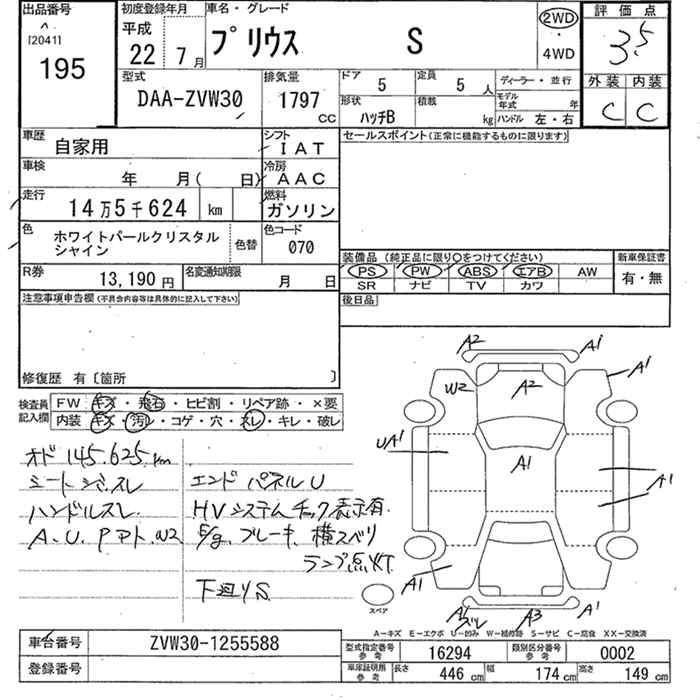 出品番号 初度登録年月 車名・グレード 評価点
[2041] 平成 プリウス S 2WD 3.5
195 22 7月 4WD
外装 内装
型式 排気量 ドア 5 定員 5人 ディーラー・並行 C C
DAA-ZVW30 1797cc 形状 ハッチB 積載 kg モデル年式 年
ハンドル 左・右
車歴 自家用 シフト IAT セールスポイント(正常に機能するものに限ります)
車検 年 月( 日) 冷房 AAC
走行 14万5千624 km 燃料 ガソリン
色 ホワイトパールクリスタル 色替 色コード 070
シャイン
装備品(純正品に限り○をつけてください) 新車保証書
PS PW ABS エアB AW 有・無
R券 13,190円 名変通知期限 月 日 SR ナビ TV カワ
注意事項申告欄(不具合内容等は具体的に記入して下さい) 後日品
修復歴 有〔箇所 〕
検査員 FW キズ・飛石・ヒビ割・リペア跡・×要
記入欄 内装 キズ・汚レ・コゲ・穴・スレ・キレ・破レ
A2 A1
W2 A2 A1
UA1 A1 A1
A1
A1 A3 A1
スペア
オド 145.625km
シートシミ.スレ エンドパネルU
ハンドルスレ HVシステムチェック表示有
A.U.Pアト.W2 E/g.ブレーキ.横スベリ
ランプ点灯
下廻りS
A-キズ E-エクボ U-凹み W-補修跡 S-サビ C-腐食 XX-交換済
車台番号 ZVW30-1255588 型式指定番号 参考 16294 類別区分番号 参考 0002
登録番号 車庫証明用 参考 長さ 446cm 幅 174cm 高さ 149cm